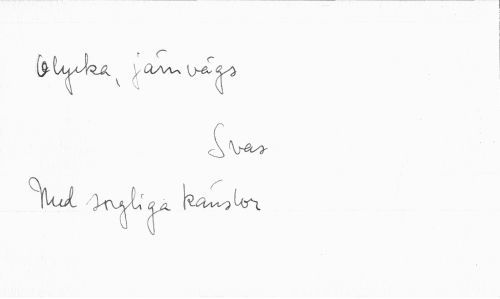 Olycka, järnvägs
Svas
Med sorgliga känslor